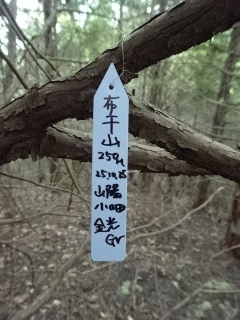 布干山
250m
25.10.25
山陽
小田
金光
Gr